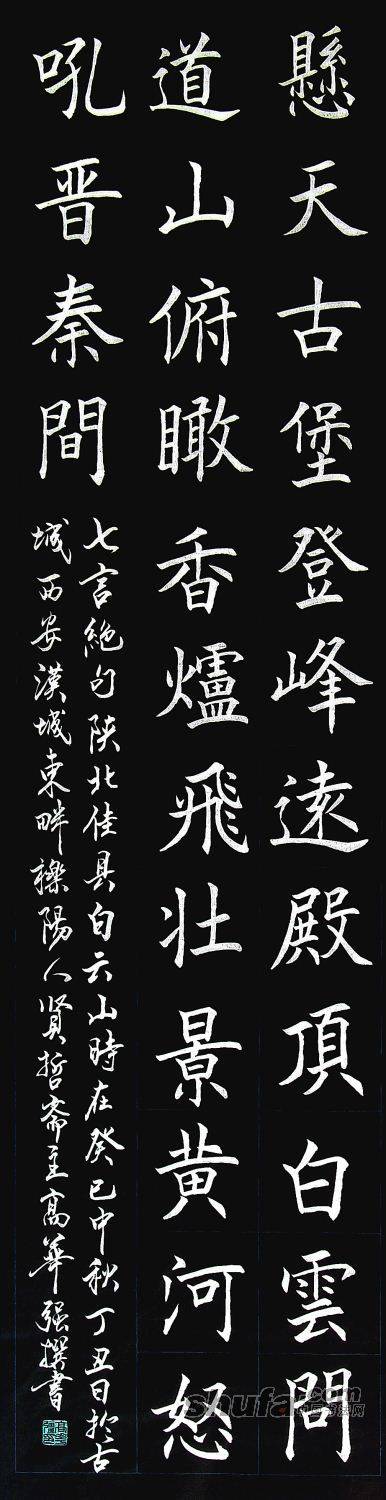 懸天古堡登峰遠殿頂白雲問
道山俯瞰香爐飛壯景黄河怒
吼晋秦間
七言絶句陝北佳县白云山時在癸巳中秋丁丑日於古
城西安漢城東畔櫟陽人賢哲齋主高華强撰書
shufa.com
中国书法网